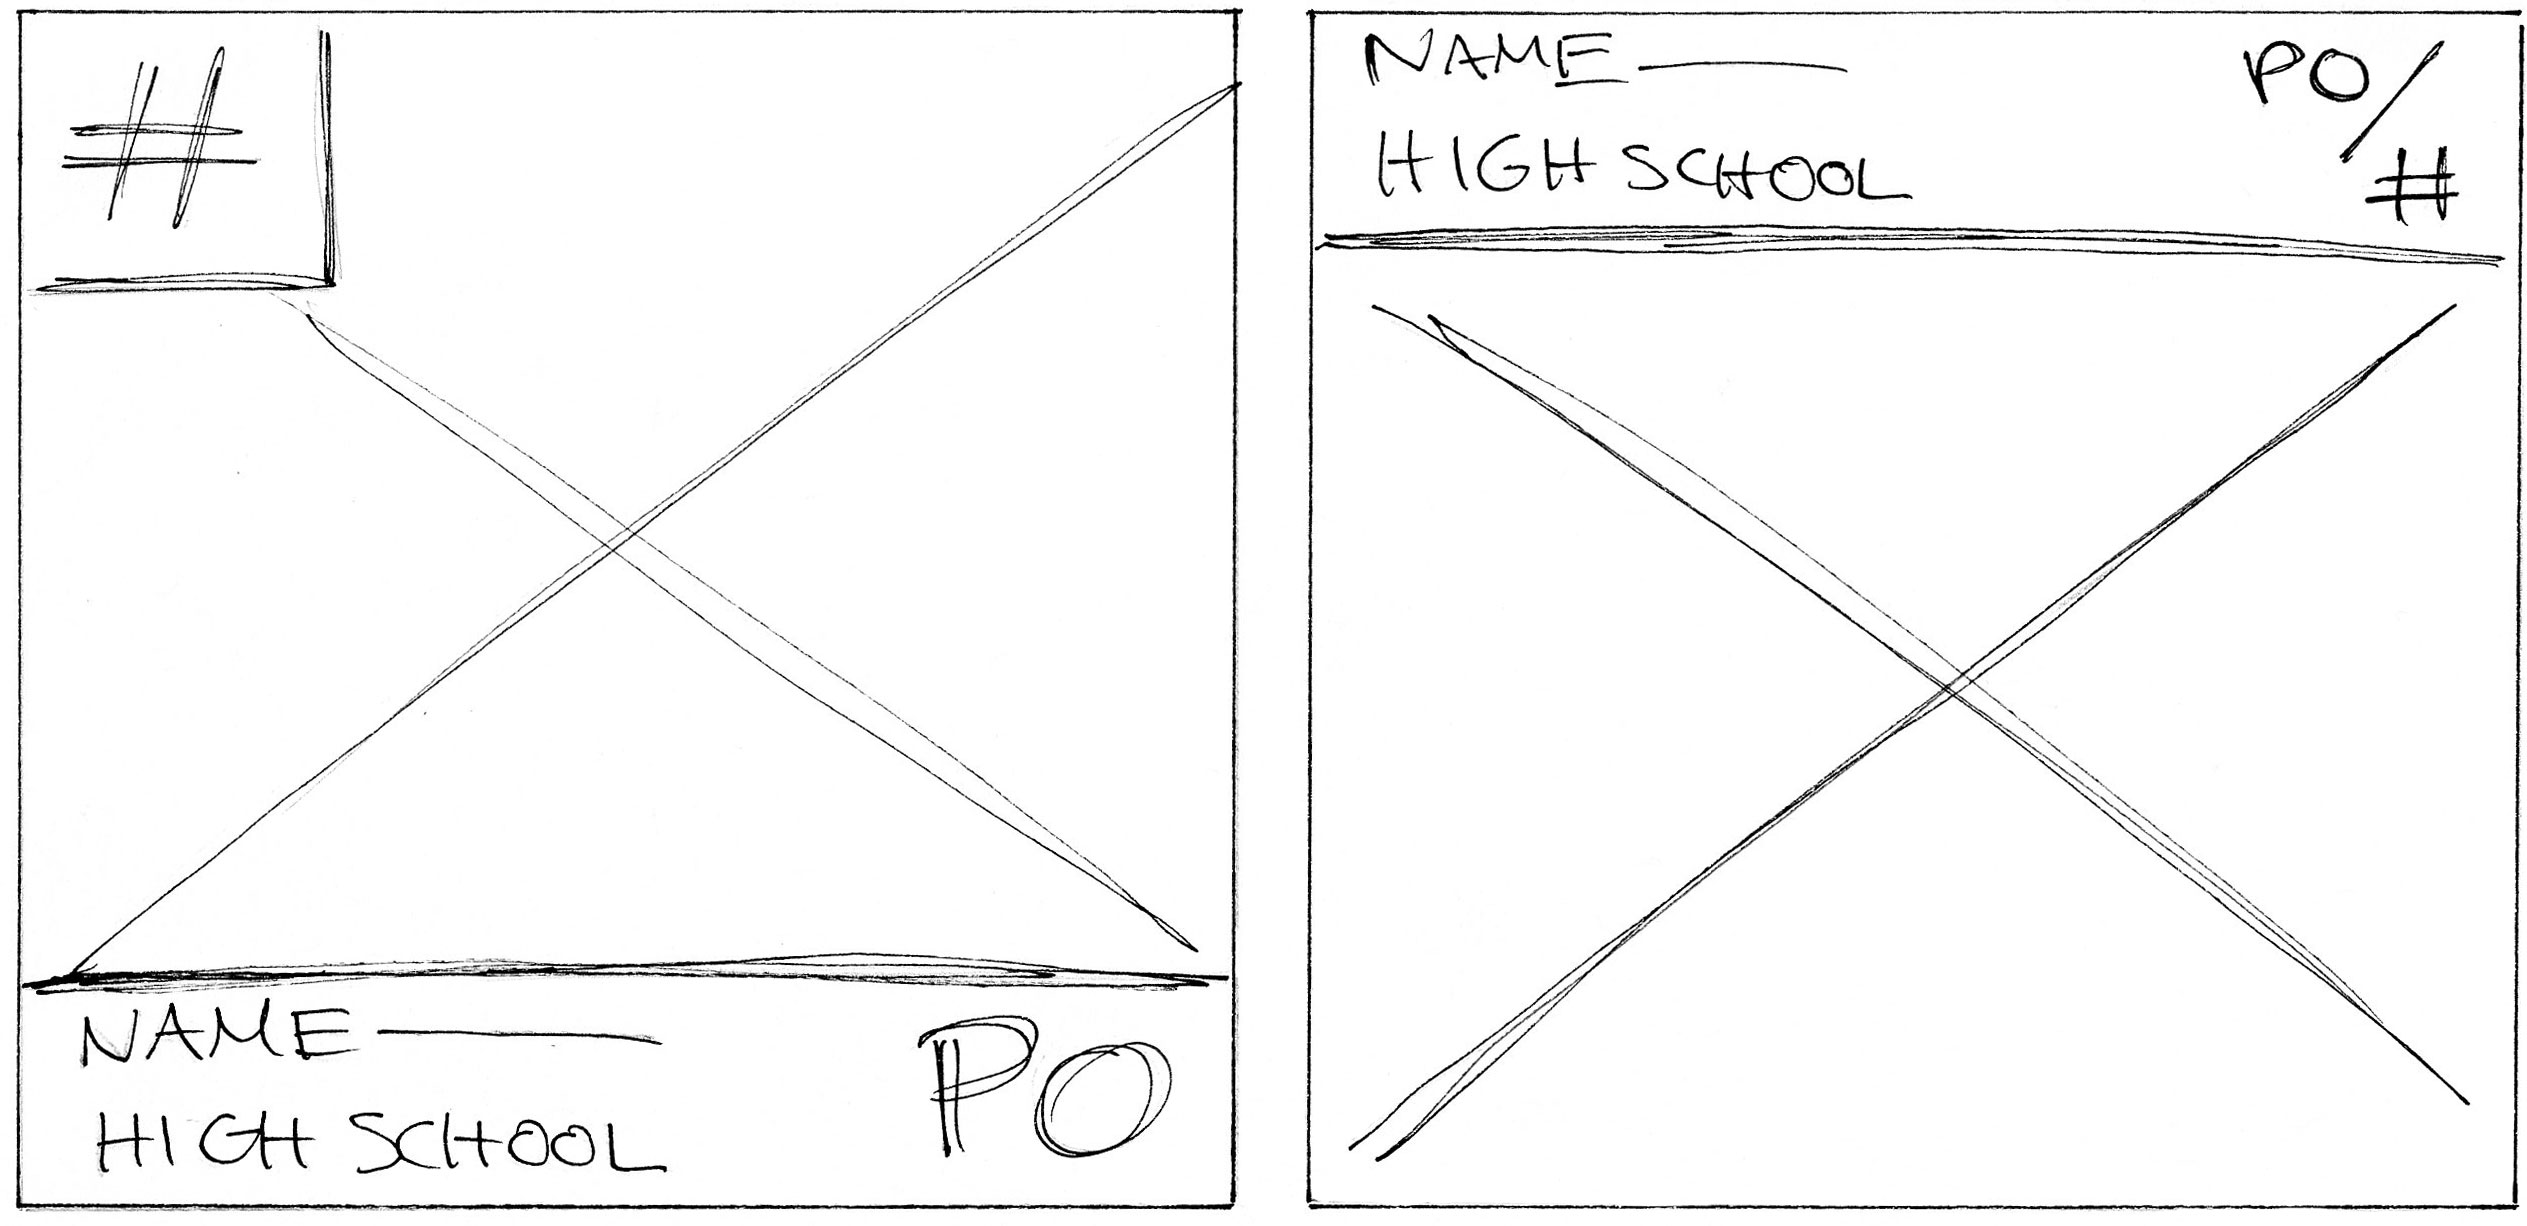 #
NAME
HIGH SCHOOL
PO
NAME
HIGH SCHOOL
PO/
#